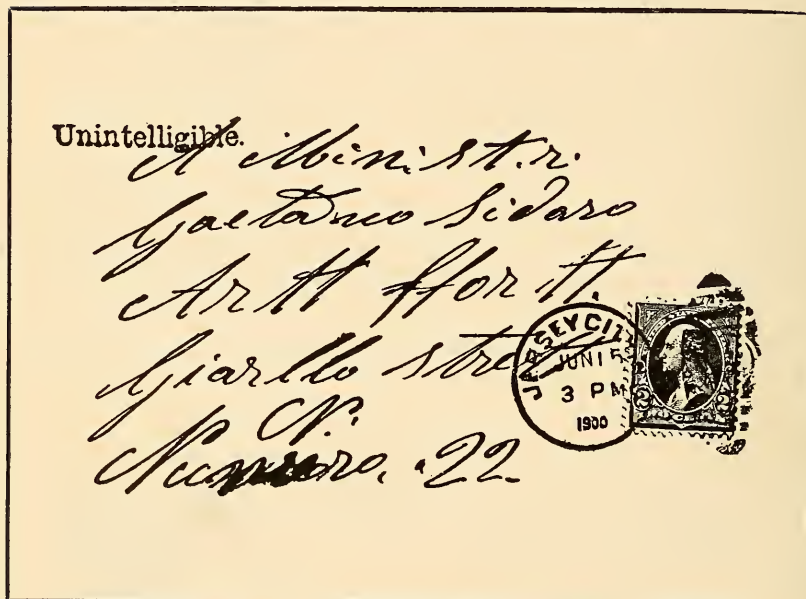 Unintelligible.
A Ministr.
Gaetano Sidaro
Artt ffor tt.
Giarllo street
N.
Numero. 22
JERSEY CITY
JUN 15
3 PM
1900
2 2